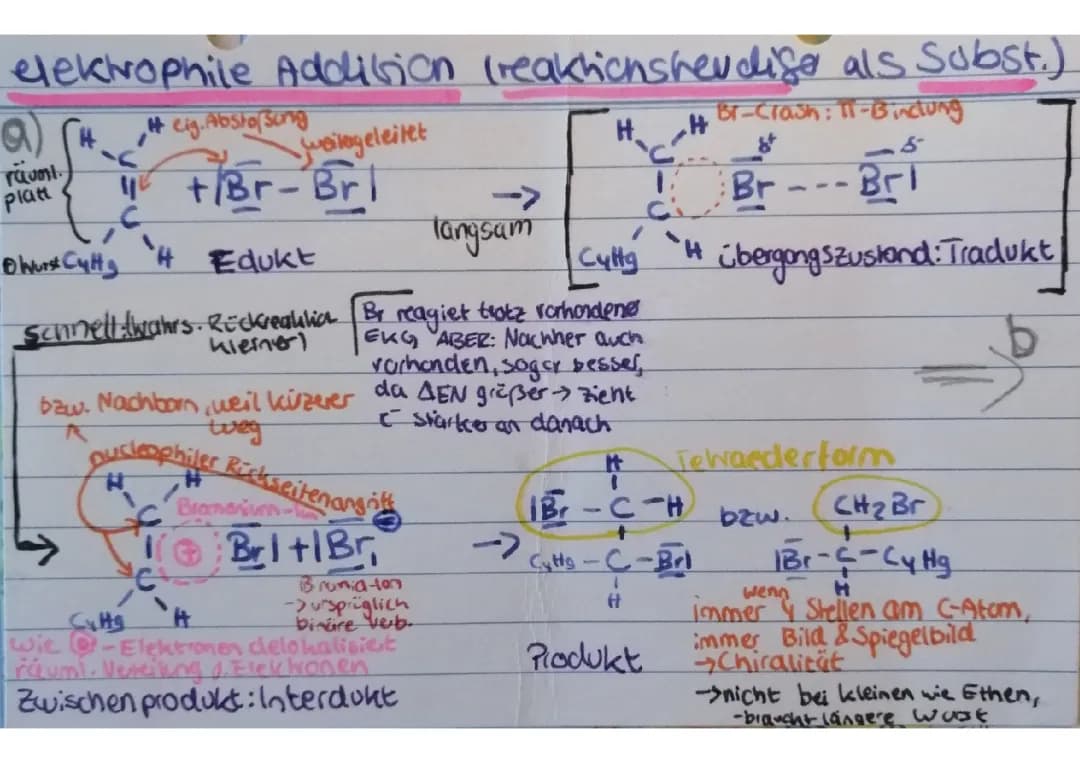 elektrophile Addition (reaktionsfreudiger als Subst.)
a)
H H eig. Abstoßung
weitergeleitet
C
räuml. platt
|| + |Br - Br|
C
→
langsam
C4H9 H Edukt
Br-Crash: π-Bindung
H H
C δ+ δ-
| Br --- Br|
C
C4H9 H Übergangszustand: Tradukt
schnell: (wahrs. Rückreaktion
kleiner)
Br reagiet trotz vorhandener
EKG ABER: Nachher auch
vorhanden, sogar besser,
da ΔEN größer → zieht
stärker an danach
b
bzw. Nachbarn, weil kürzerer
weg
nucleophiler Rückseitenangriff
H H
C Bromonium-Ion
| + Br| + |Br| ⊖
C
C4H9 H
Bromid-Ion
→ ursprüglich
binäre Verb.
wie - Elektronen delokalisiert
räuml. Verteilung d. Elektronen
Zwischenprodukt: Interdukt
→
Tetraederform
H
|Br - C - H
C4H9 - C - Br|
H
Produkt
bzw.
CH2Br
|Br - C - C4H9
H
wenn
immer 4 Stellen am C-Atom,
immer Bild & Spiegelbild
→ Chiralität
→ nicht bei kleinen wie Ethen,
- braucht längere Wurst